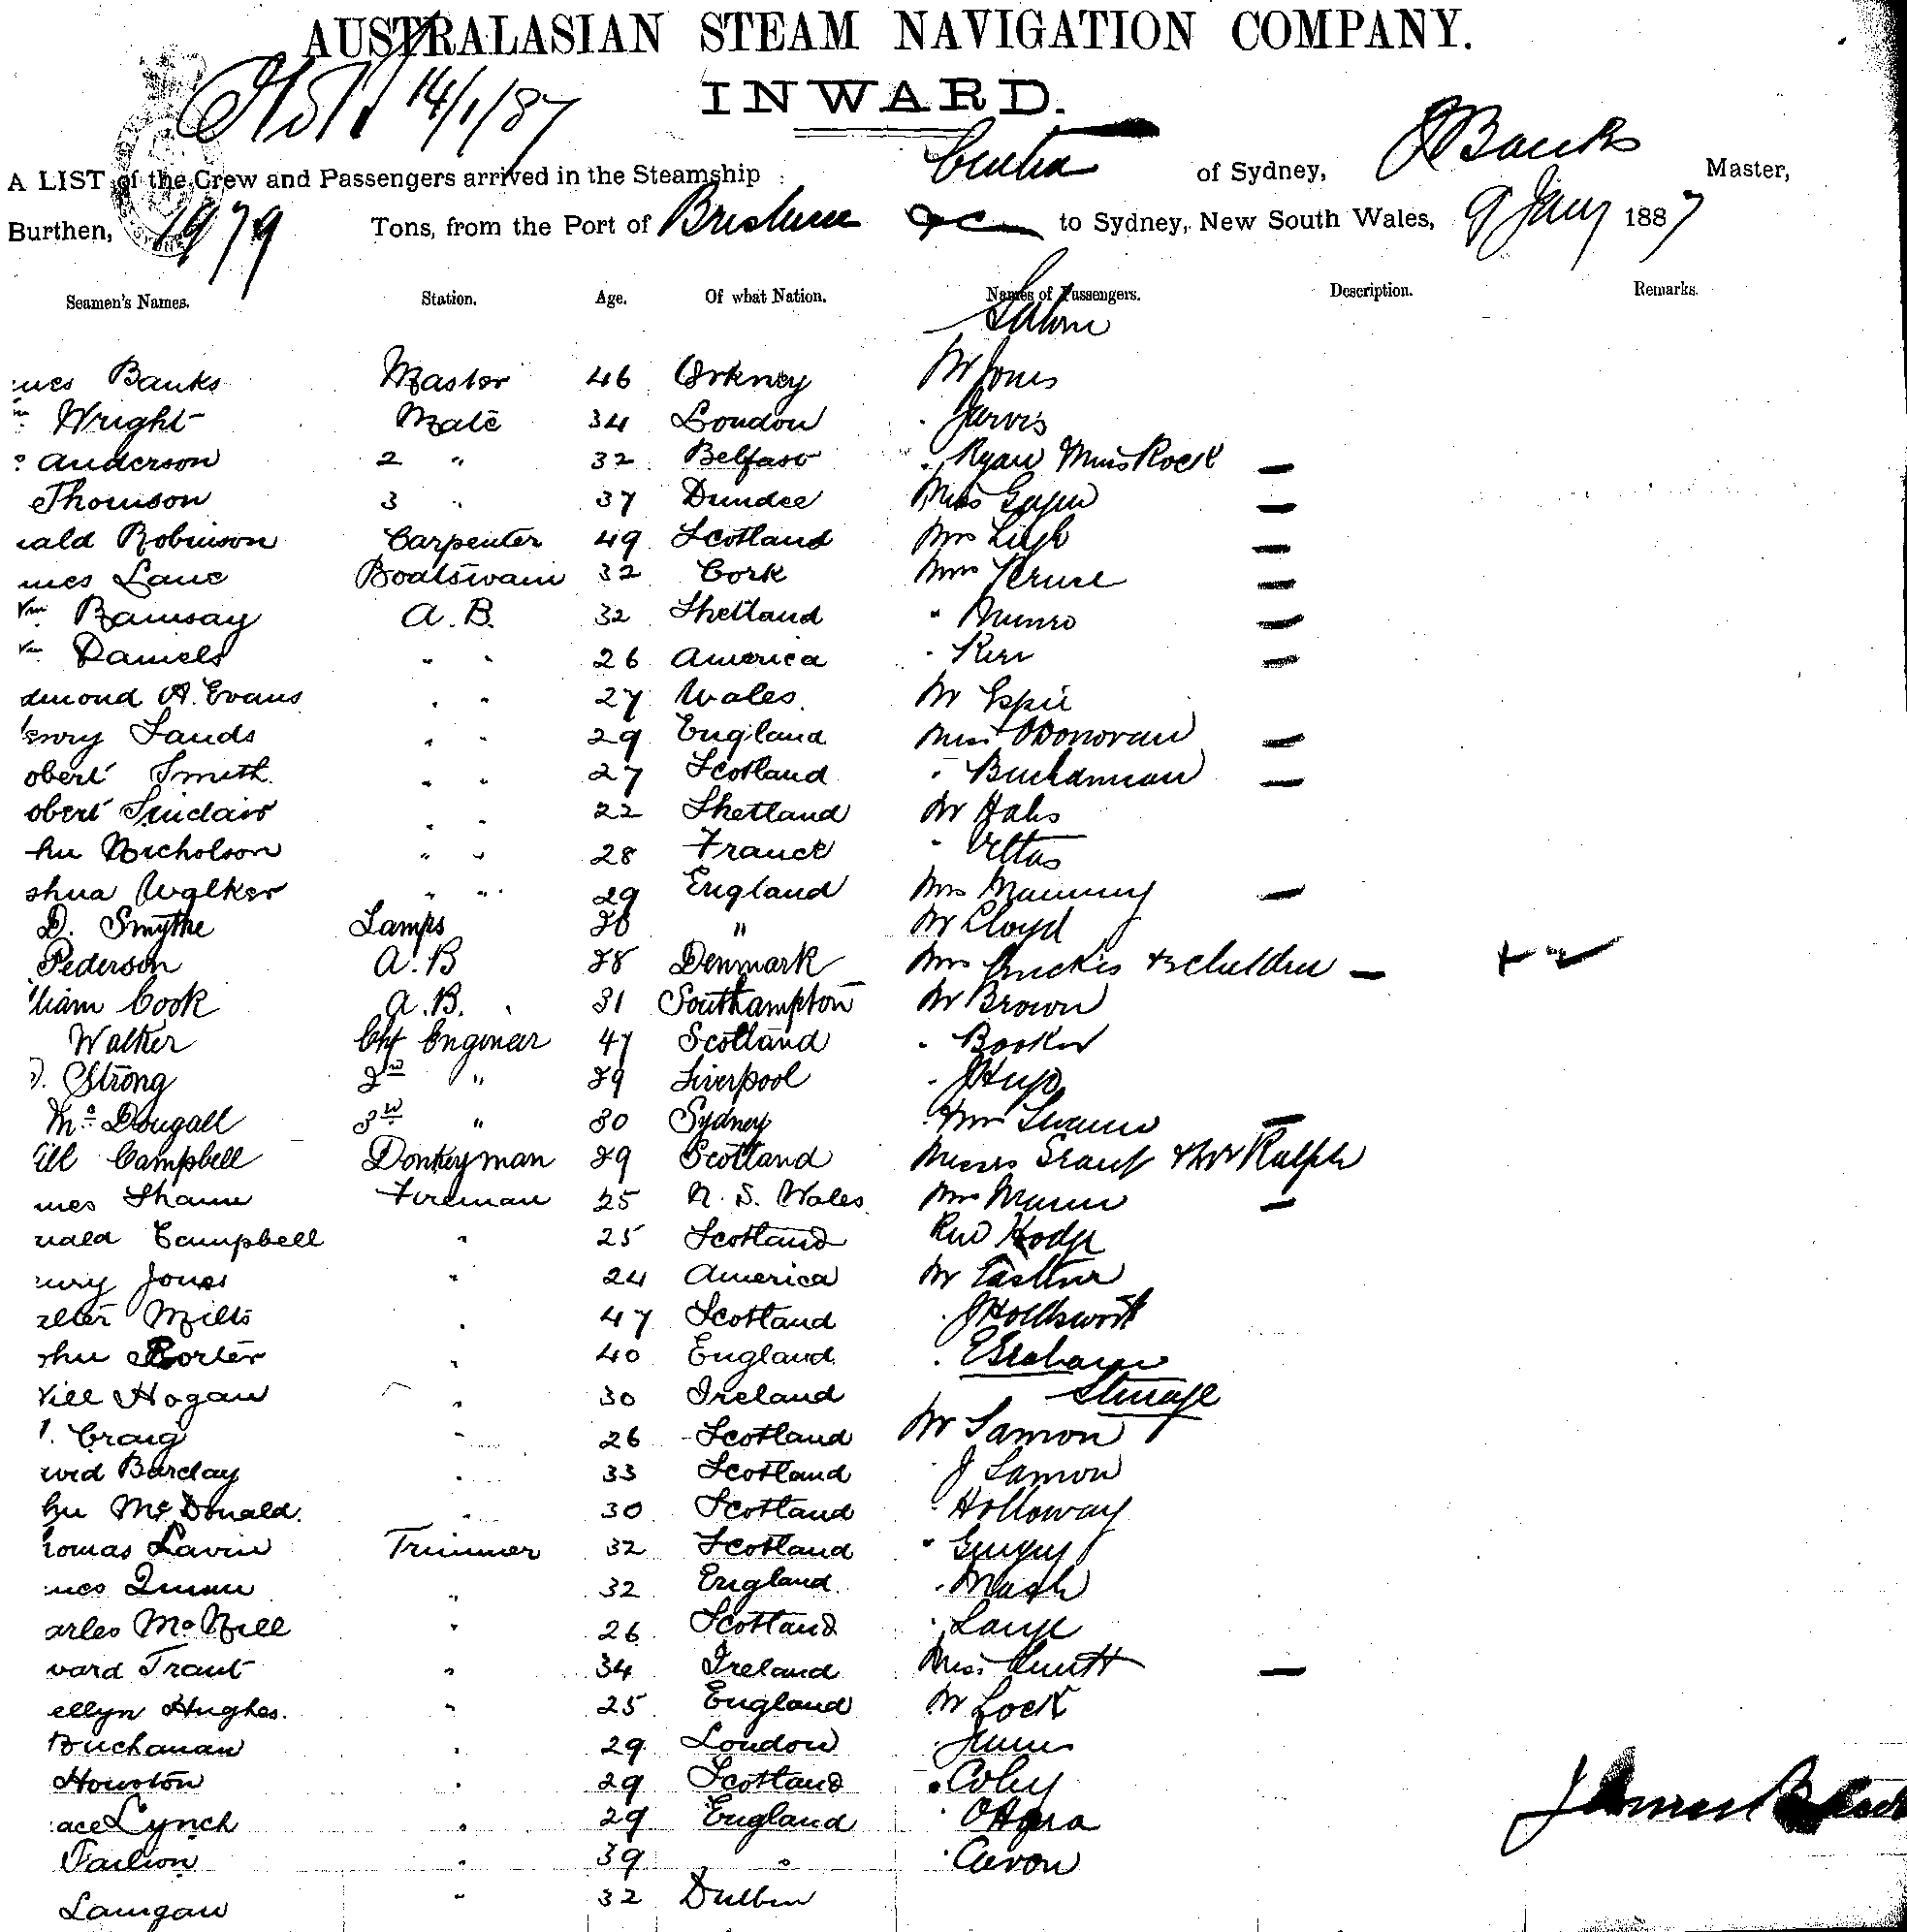 AUSTRALASIAN STEAM NAVIGATION COMPANY.
INWARD.
14/1/87
A LIST of the Crew and Passengers arrived in the Steamship of Sydney, J Banks Master,
Burthen, 1979 Tons, from the Port of Brisbane &c to Sydney, New South Wales, 9 Jany 1887
Seamen's Names. Station. Age. Of what Nation. Names of Passengers. Description. Remarks.
Saloon
mes Banks Master 46 Orkney Mr Jones
Wright Mate 34 London " Jarvis
Anderson 2 " 32 Belfast " Ryan Miss Rock —
Thomson 3 " 37 Dundee Miss —
nald Robinson Carpenter 49 Scotland Mrs Leigh —
mes Lane Boatswain 32 Cork Mrs Kruse —
Wm Ramsay A.B. 32 Shetland " Munro —
Wm Daniels " " 26 America " Kerr —
dmond A. Evans " " 27 Wales. Mr Espie
enry Sands " " 29 England Miss O'Donovan —
obert Smith " " 27 Scotland " Buchannan —
obert Sinclair " " 22 Shetland Mr
hn Nicholson " " 28 France "
shua Walker " " 29 England Mrs Manning —
D. Smythe Lamps 26 " Mr Lloyd
Pederson A.B 28 Denmark Mrs & 2 children —
lliam Cook A.B. 31 Southampton Mr Brown
Walker Chf Engineer 47 Scotland " Booker
Strong 2nd " 29 Liverpool "
McDougall 3rd " 30 Sydney Mrs Swann —
ill Campbell Donkeyman 29 Scotland Messrs Grant & Mr Ralph
mes Shann Fireman 25 N. S. Wales Mrs Mann —
nald Campbell " 25 Scotland Rev Hodge
enry Jones " 24 America Mr
alter Mills " 47 Scotland " J Holdsworth
ohn Porter " 40 England " E Graham
Will Hogan " 30 Ireland Steerage
Craig " 26 Scotland Mr Samon
avid Barclay " 33 Scotland " J Samon
hn McDonald " 30 Scotland " Holloway
homas Lavin Trimmer 32 Scotland "
mes Quinn " 32 England " Mash
arles McNeill " 26 Scotland " Lange
ward Trant " 34 Ireland Miss —
ellyn Hughes. " 25 England Mr Lock
Buchanan " 29 London " James
Houston " 29 Scotland " Coley
ace Lynch " 29 England " O'Hara
" 39 "
Lanigan " 32 Dublin
James Banks